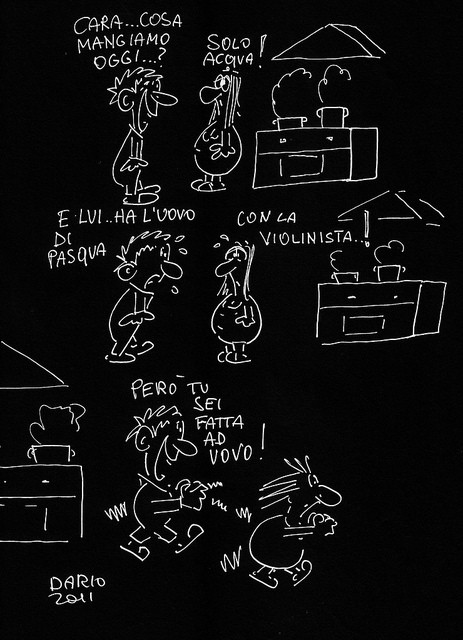 CARA...COSA
MANGIAMO
OGGI...?
SOLO
ACQUA!
E LUI..HA L'UOVO
DI
PASQUA
CON LA
VIOLINISTA..!
PERÒ TU
SEI
FATTA
AD
VOVO!
DARIO
2011